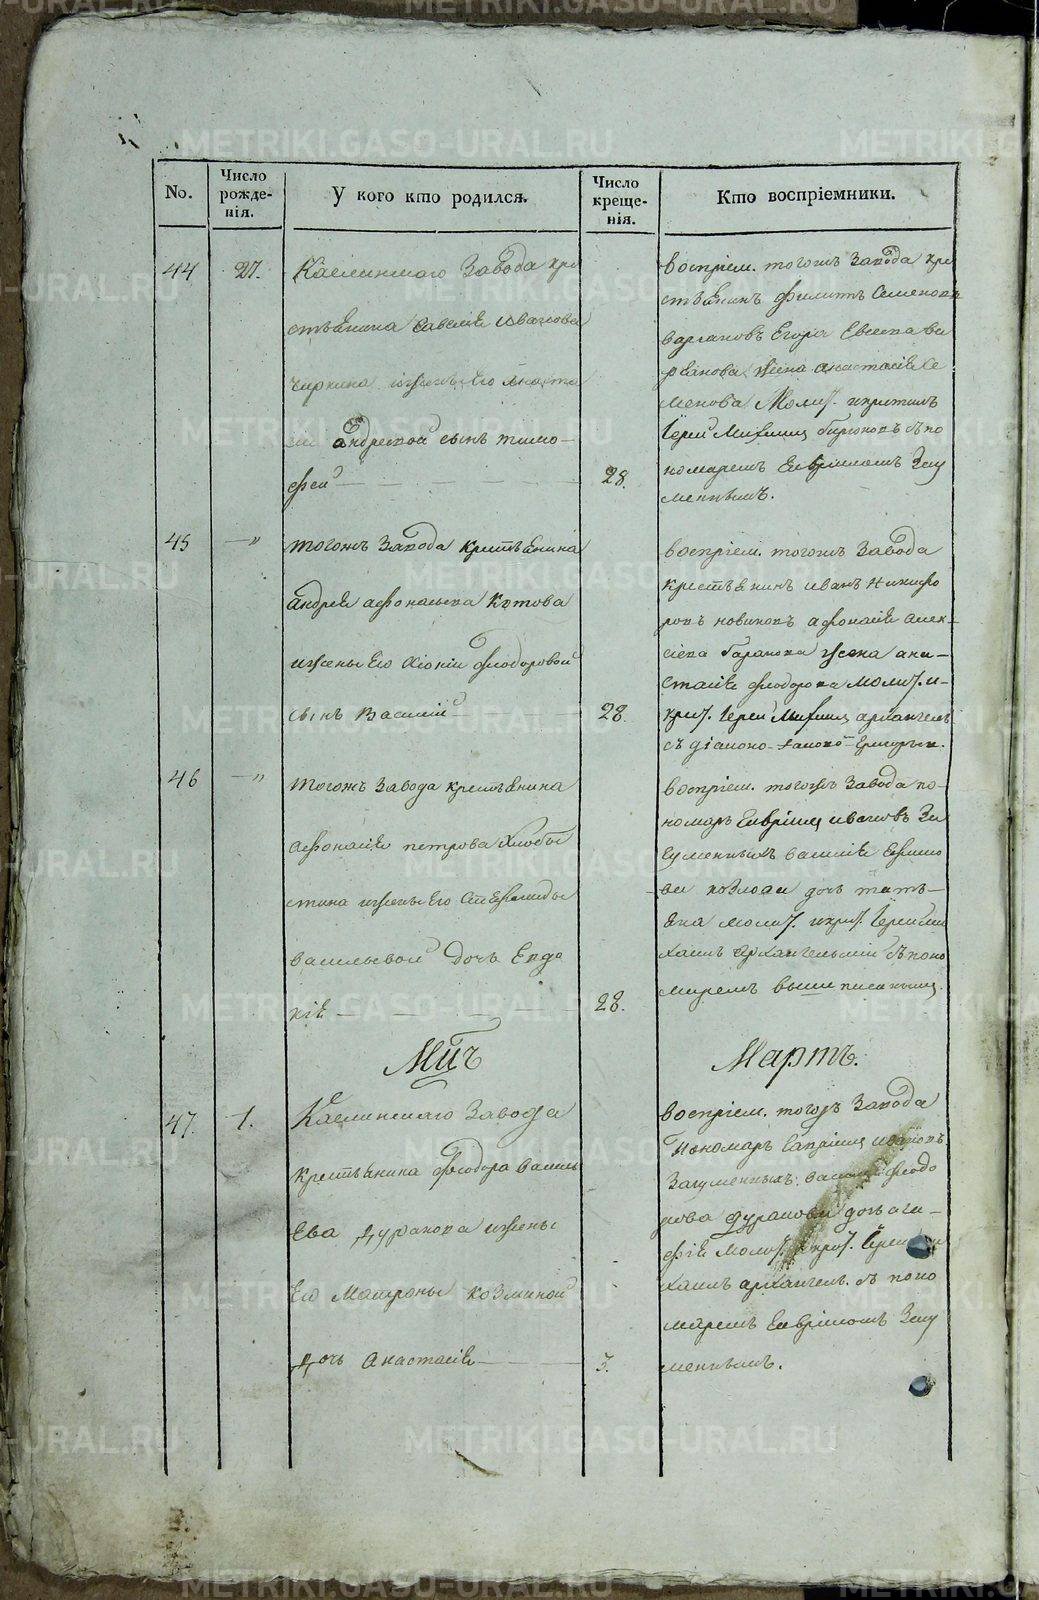 No.
Число рожде-нія.
У кого кто родился.
Число креще-нія.
Кто воспріемники.
44
27.
Каслинскаго Завода кре
стьянина Савелія Иванова
Чиркина и жены Его Анаста
сіи Андреевой сынъ тимо-
фей
28.
воспріем. тогожъ Завода кре
стьянинъ Филипъ Семеновъ
Егора Евсеева
жена анастасія Се
менова Молит. и крестилъ
Іерей съ по
номаремъ Гавріиломъ Загу
меннымъ.
45
—"
тогожъ Завода крестьянина
андрея афонасьева Котова
и жены Его Хіоніи Феодоровой
сынъ Василій
28.
воспріем. тогожъ Завода
крестьянинъ иванъ Никифо
ровъ новиковъ афонасія алек-
сіева жена ана-
стасія Феодорова молит. и
крес. Іерей Михаилъ архангель
46
—"
тогожъ Завода крестьянина
афонасія петрова Хлобы
стина и жены Его Степаниды
васильевой дочь Евдо
кія
28.
воспріем. тогожъ Завода по-
номарь Гавріилъ ивановъ За
гуменныхъ василія Ефимо
ва козлова дочь тать-
яна молит. и крес. Іерей Ми
хаилъ Архангельскій съ поно
маремъ выше писаннымъ
М-цъ
Мартъ.
47.
1.
Каслинскаго Завода
крестьянина Феодора Василь
Ева Дуракова и жены
Его Матроны козминой
дочь Анастасія
3.
воспріем. тогожъ Завода
Пономарь Гавріилъ ивановъ
Загуменныхъ. василія Феодо
рова дуракова дочь ага-
фія молит. и крес. Іерей Ми
хаилъ архангел. съ поно
маремъ Гавріиломъ Загу
меннымъ.
METRIKI.GASO-URAL.RU